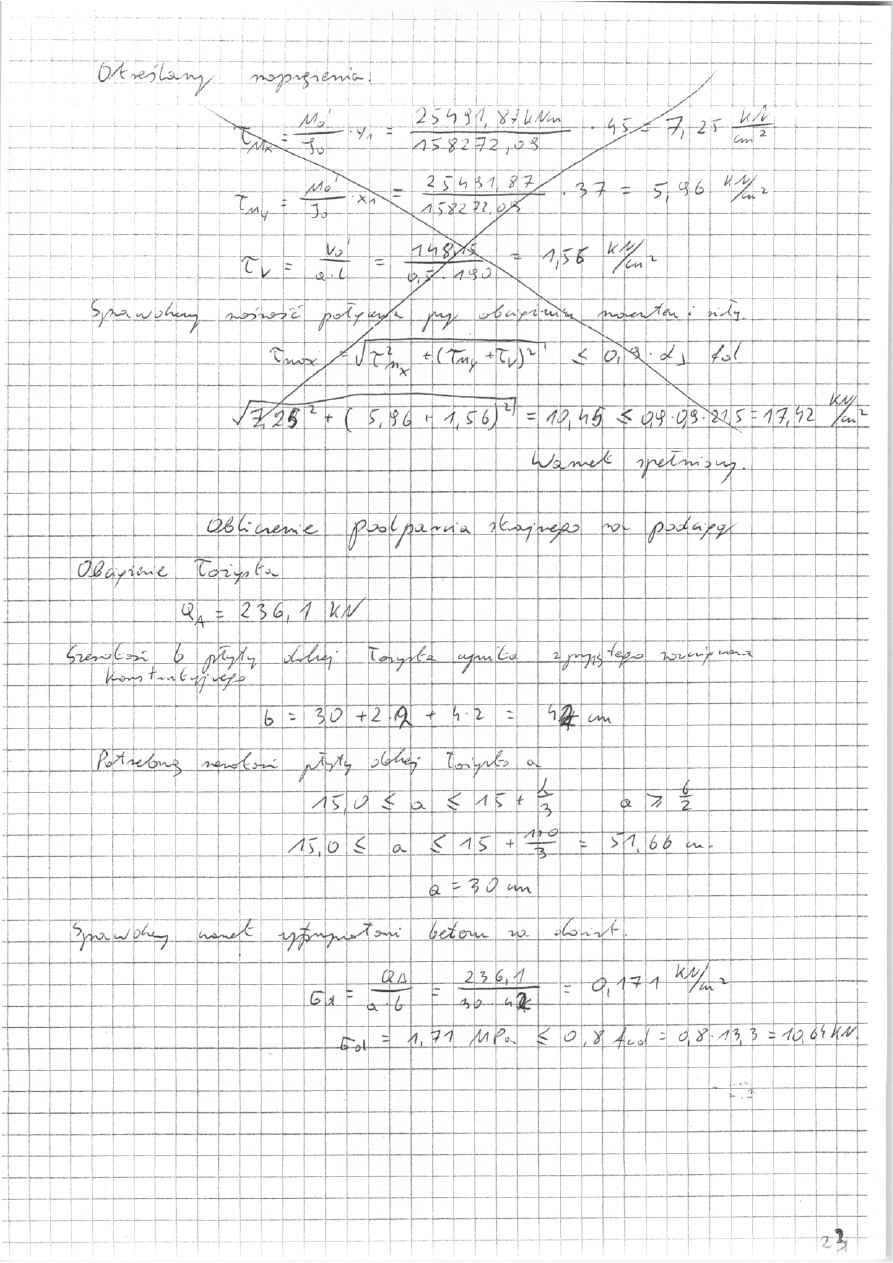 Określamy naprężenia:
τ_Mx = M₀'/J₀ · y₁ = 25491,87kNm/158272,09 · 45 = 7,25 kN/cm²
τ_My = M₀'/J₀ · x₁ = 25491,87/158272,09 · 37 = 5,96 kN/cm²
τ_V = V₀'/a·l = 148,15/0,5·190 = 1,56 kN/cm²
Sprawdzamy nośność połączenia przy obciążeniu momentem i siły.
τmax = √(τ²_Mx + (τ_My + τ_V)²) ≤ 0,9 · α⊥ fd
√(7,25² + (5,96 + 1,56)²) = 10,45 ≤ 0,9·0,9·21,5 = 17,42 kN/cm²
Warunek spełniony.
Obliczenie podparcia skrajnego na podciąg
Obciążenie łożyska
Q_A = 236,1 KN
Szerokość b płyty dolnej łożyska wynika z przyjętego rozwiązania
konstrukcyjnego
b = 30 + 2·2 + 4·2 = 42 cm
Potrzebną szerokość płyty dolnej łożyska a
15,0 ≤ a ≤ 15 + h/3 a ≥ b/2
15,0 ≤ a ≤ 15 + 110/3 = 51,66 cm.
a = 30 cm
Sprawdzamy warunek wytrzymałości betonu na docisk.
σd = QA/a·b = 236,1/30·42 = 0,171 kN/cm²
σd = 1,71 MPa ≤ 0,8 fcd = 0,8·13,3 = 10,64 KN.